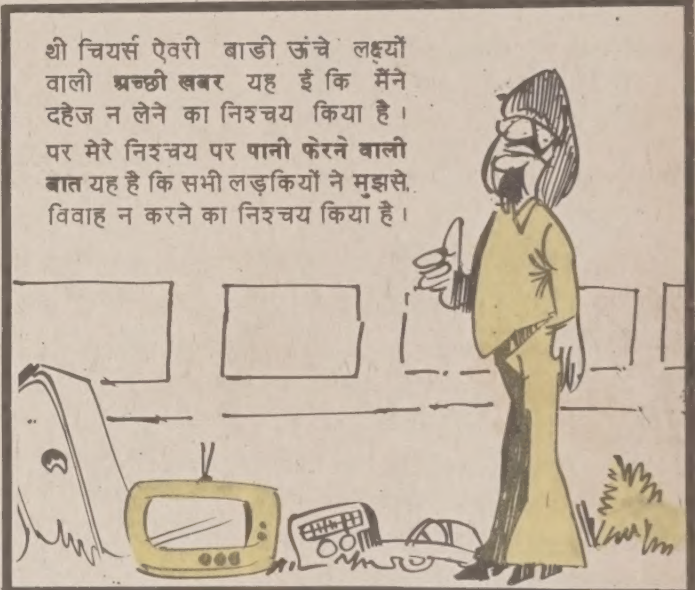 थी चियर्स ऐवरी बाडी ऊंचे लक्ष्यों
वाली अच्छी खबर यह ई कि मैंने
दहेज न लेने का निश्चय किया है ।
पर मेरे निश्चय पर पानी फेरने वाली
बात यह है कि सभी लड़कियों ने मुझसे
विवाह न करने का निश्चय किया है ।